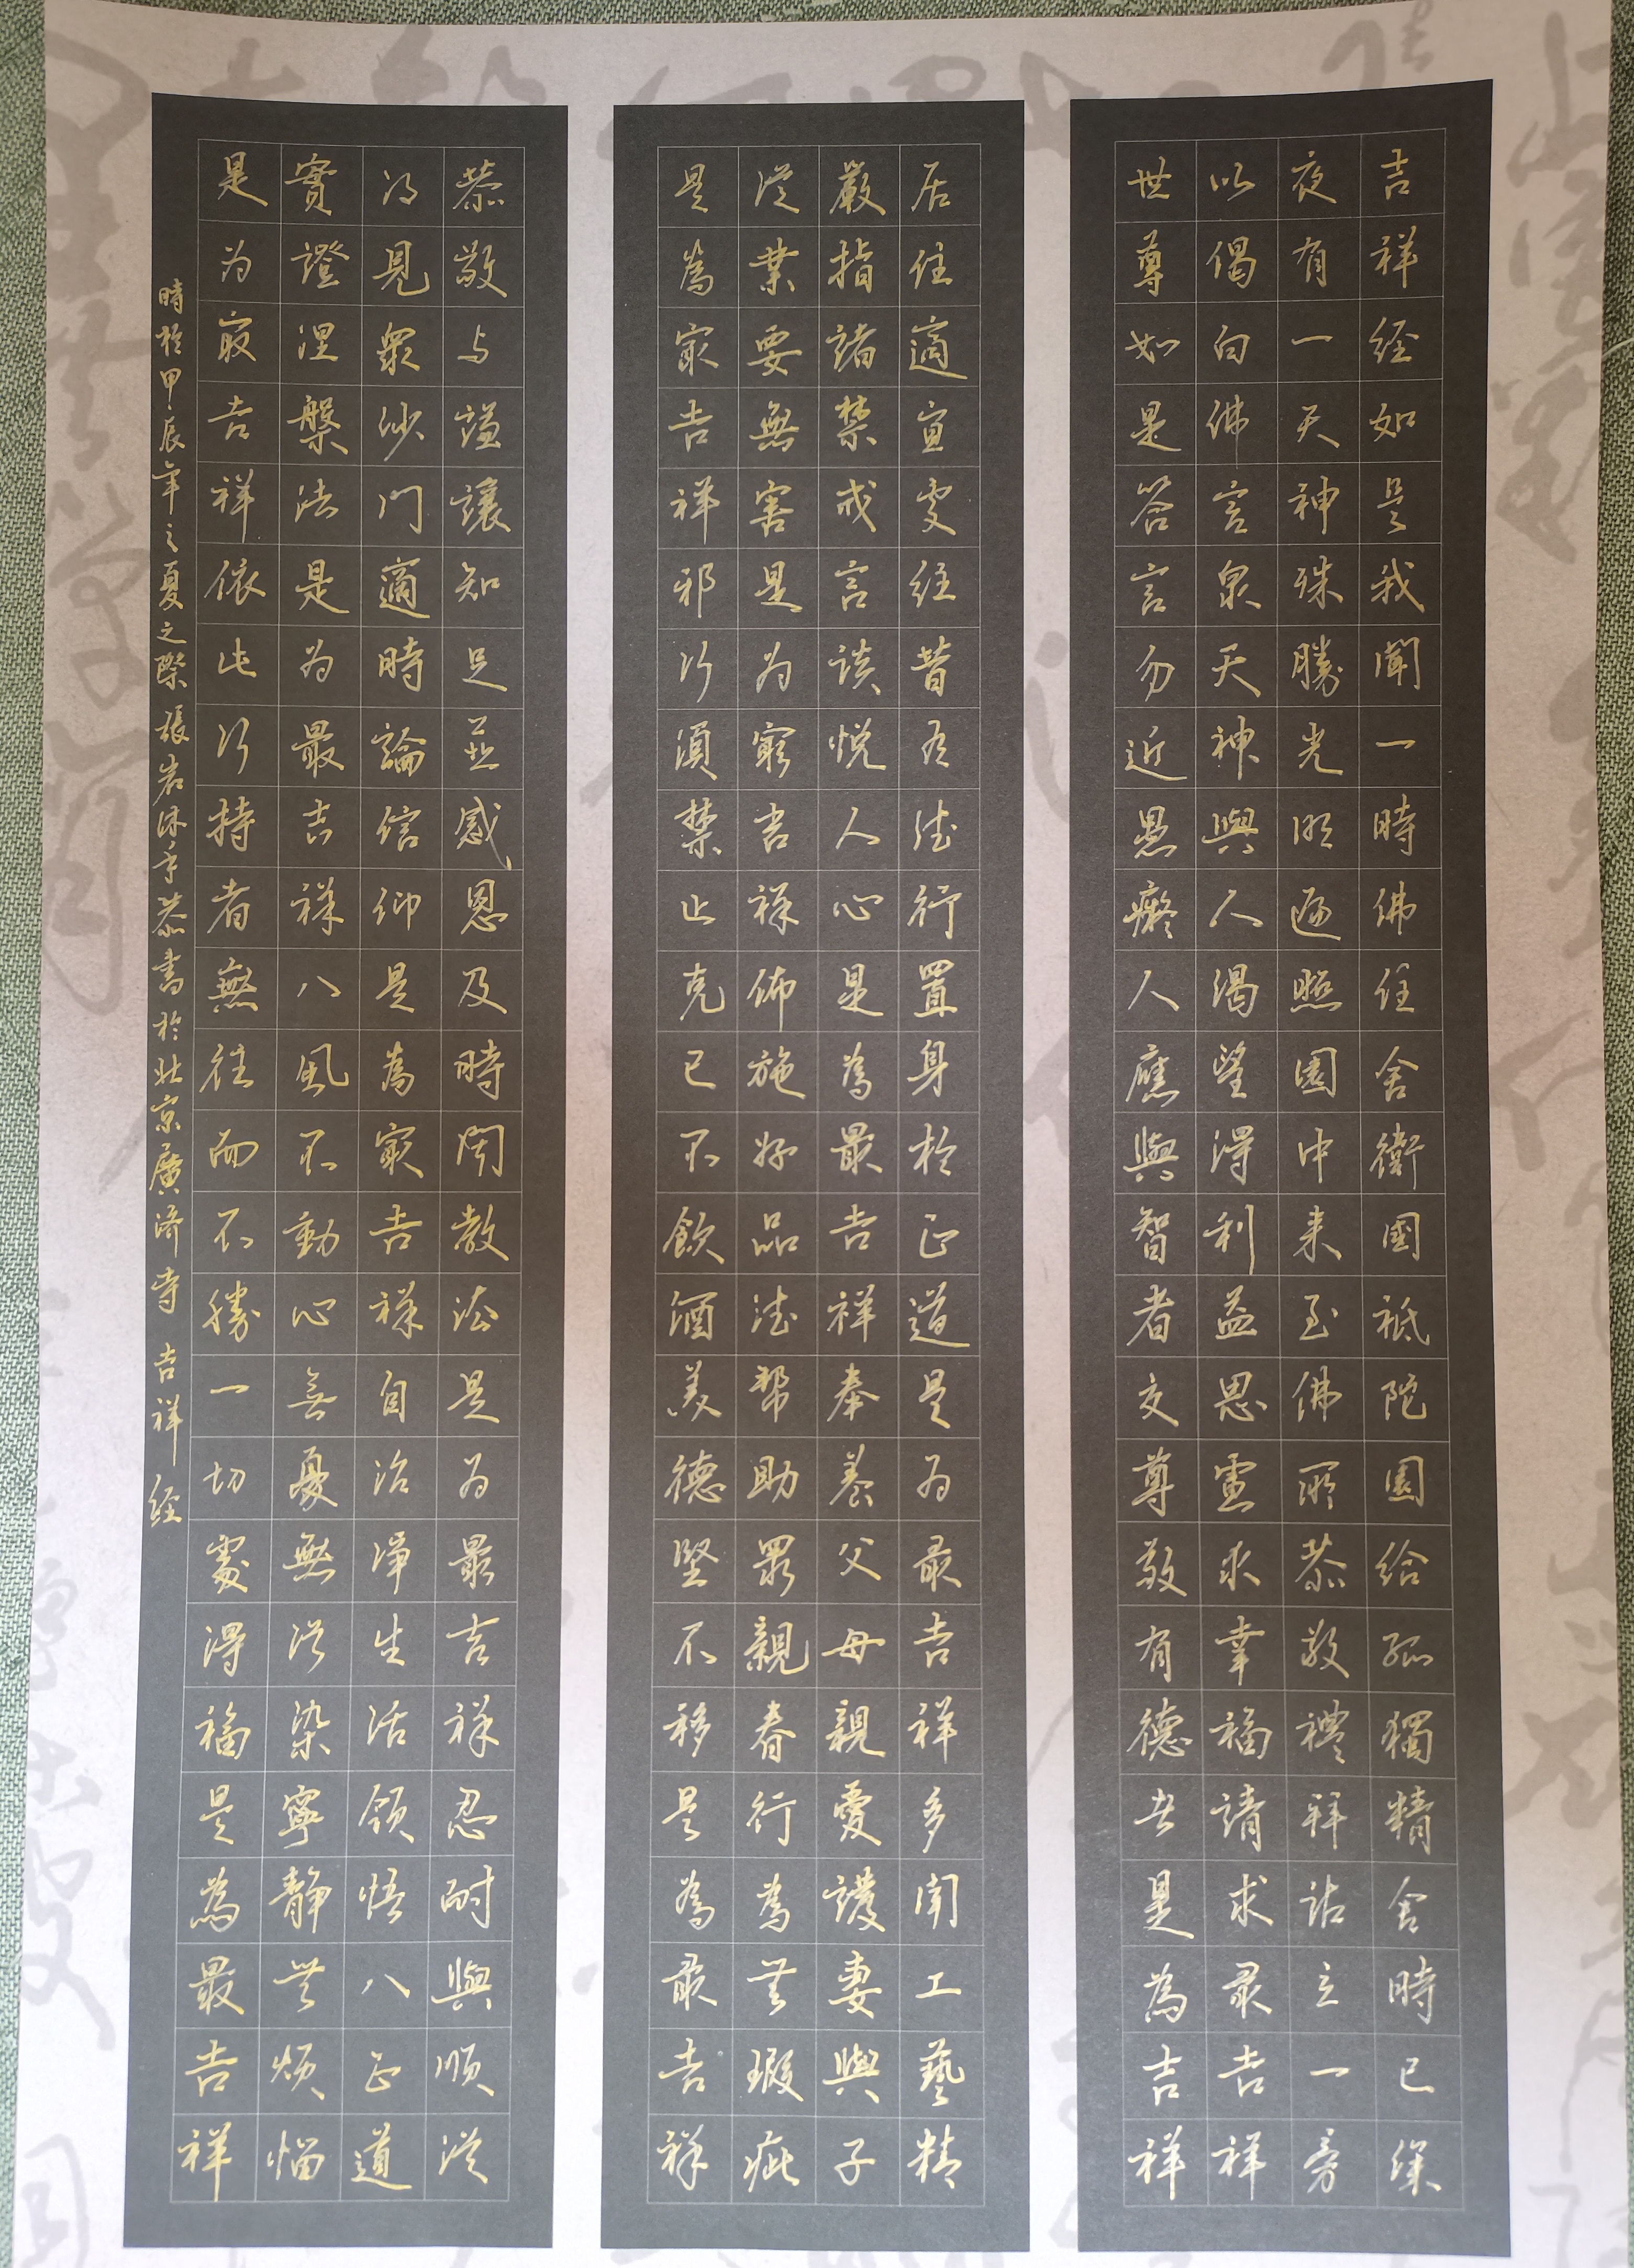 吉祥经如是我聞一時佛住舍衛國祇陀園給孤獨精舍時已深
夜有一天神殊勝光明遍照園中来至佛所恭敬禮拜站立一旁
以偈白佛言眾天神與人渴望得利益思慮求幸福請求最吉祥
世尊如是答言勿近愚癡人應與智者交尊敬有德者是為吉祥
居住適宜處经昔有德行置身於正道是为最吉祥多聞工藝精
嚴指諸禁戒言談悦人心是為最吉祥奉養父母親愛護妻與子
從業要無害是为最吉祥佈施好品德帮助眾親眷行為無瑕疵
是為最吉祥邪行須禁止克己不飲酒美德堅不移是為最吉祥
恭敬与謙讓知足並感恩及時聞教法是为最吉祥忍耐與順從
得見眾沙門適時論信仰是為最吉祥自治淨生活領悟八正道
實證涅槃法是为最吉祥八風不動心無憂無污染寧靜無煩惱
是为最吉祥依此行持者無往而不勝一切處得福是為最吉祥
時於甲辰年之夏之際張岩沐手恭書於北京廣济寺 吉祥经